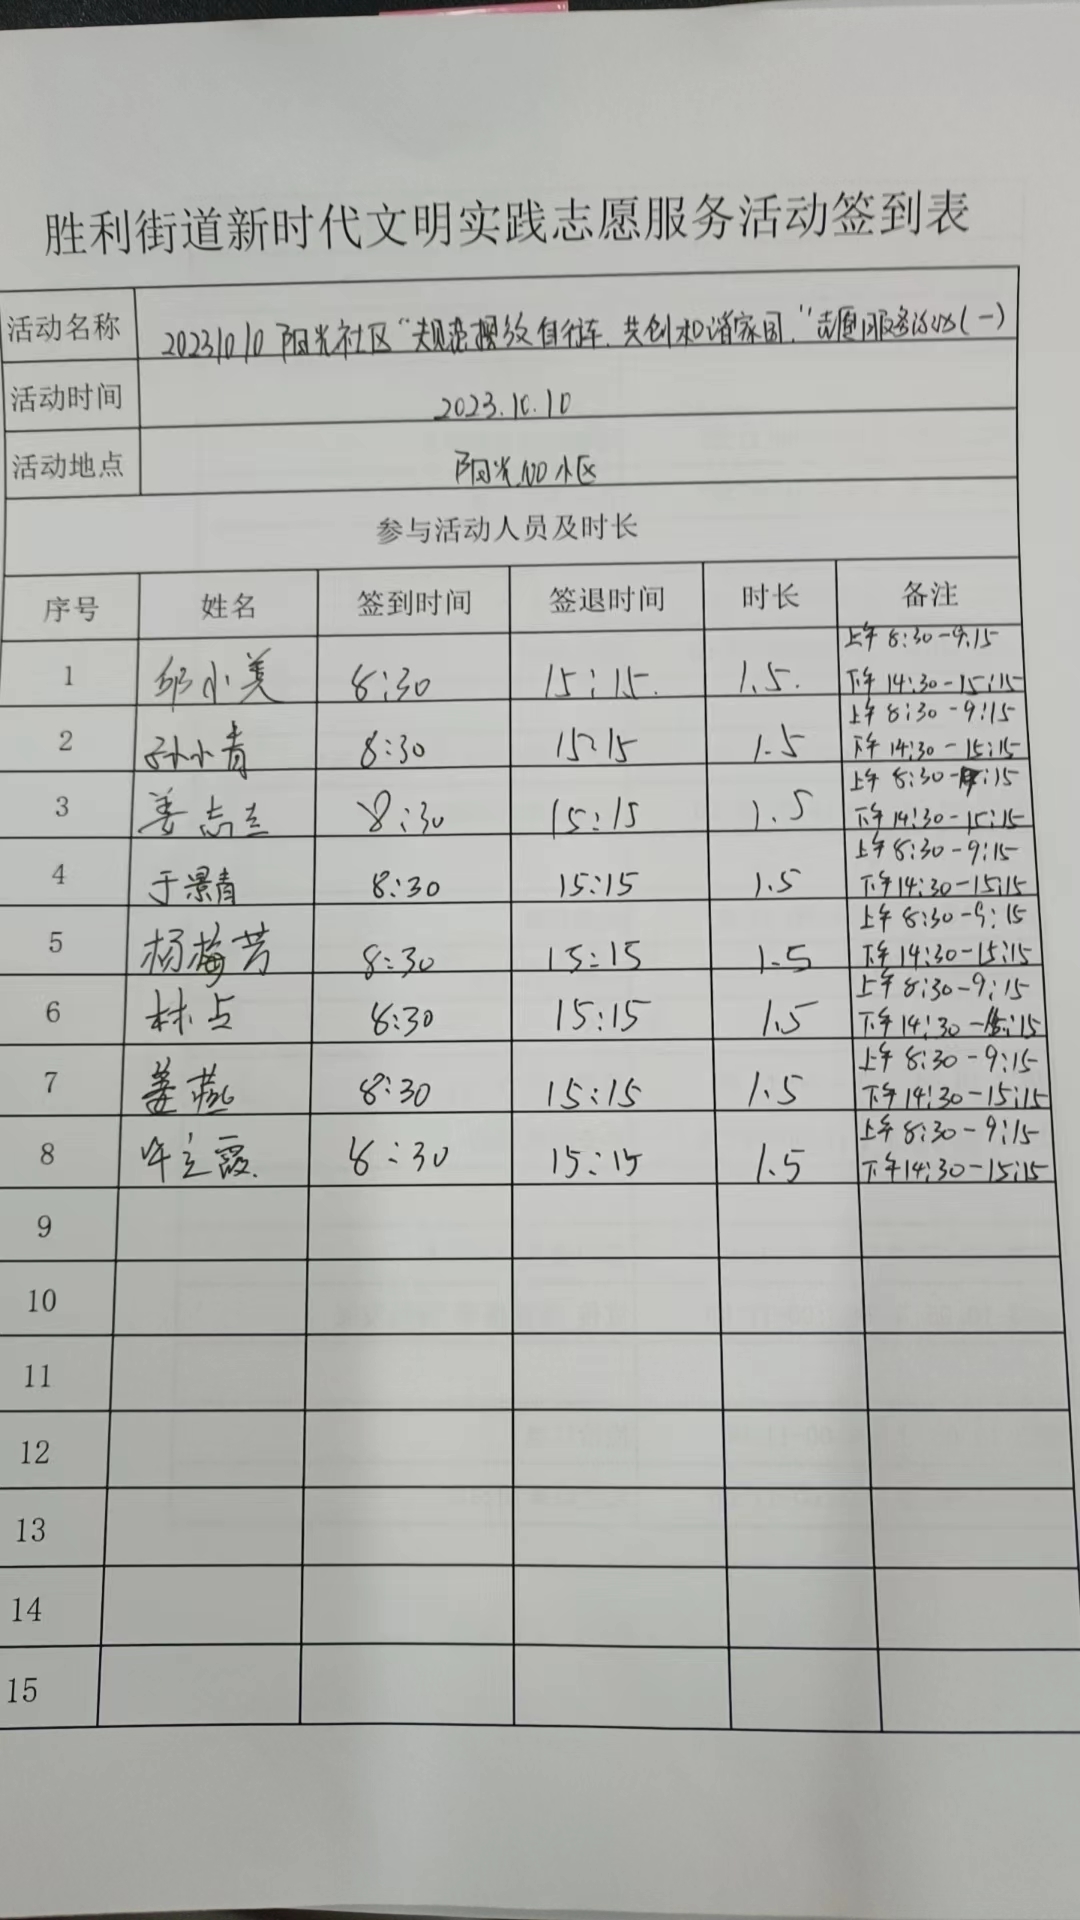 胜利街道新时代文明实践志愿服务活动签到表
活动名称 20231010 阳光社区“规范摆放自行车,共创和谐家园,”志愿服务活动(一)
活动时间 2023.10.10
活动地点 阳光100小区
参与活动人员及时长
序号 姓名 签到时间 签退时间 时长 备注
上午 8:30-9:15
1 邱小美 8:30 15:15. 1.5.
下午 14:30-15:15
上午 8:30-9:15
2 孙小青 8:30 15:15 1.5
下午 14:30-15:15
上午 8:30-9:15
3 姜志兰 8:30 15:15 1.5
下午 14:30-15:15
上午 8:30-9:15
4 于景青 8:30 15:15 1.5
下午 14:30-15:15
上午 8:30-9:15
5 杨梅芳 8:30 15:15 1.5
下午 14:30-15:15
上午 8:30-9:15
6 林 8:30 15:15 1.5
下午 14:30-15:15
上午 8:30-9:15
7 姜燕 8:30 15:15 1.5
下午 14:30-15:15
上午 8:30-9:15
8 立霞. 8:30 15:15 1.5
下午 14:30-15:15
9
10
11
12
13
14
15